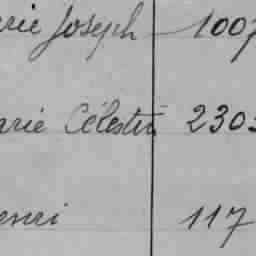 arie Joseph 1007
arie Célestin 2303
enri 117